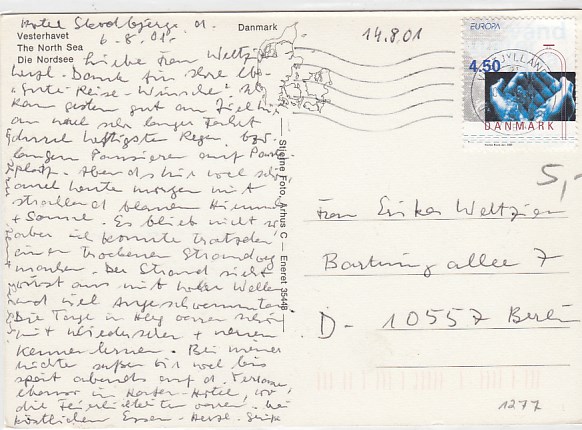 Hotel Skodbjerge
6.8.01.
Vesterhavet
The North Sea
Die Nordsee
Danmark
14.8.01
EUROPA
4.50
DANMARK
JYLLAND
Stjerne Foto, Århus C — Eneret 35448
Liebe Frau Weltzien
herzl. Dank für Ihre
"Gute-Reise-Wünsche".
kam gestern gut am Ziel
an nach sehr langer Fahrt
durch heftigsten Regen, bzw.
langen Pausieren auf Park-
platz. Abends hier
auch heute morgen mit
strahlend blauem Himmel
+ Sonne. Es blieb nicht so
aber ich konnte trotzdem
einen trockenen Strandweg
machen. Der Strand sieht
wüst aus mit hohen Wellen
und viel Angeschwemmtem
Die Tage in waren schön
mit wiedersehen + neuen
kennenlernen. Bei meiner
Nichte saßen wir bis
spät abends auf d. Terrasse
ebenso im Hotel, wo
die Feierlichkeiten waren bei
köstlichem Essen. Herzl. Grüße
5,-
Frau Erika Weltzien
Bartningallee 7
D- 10557 Berlin
1277